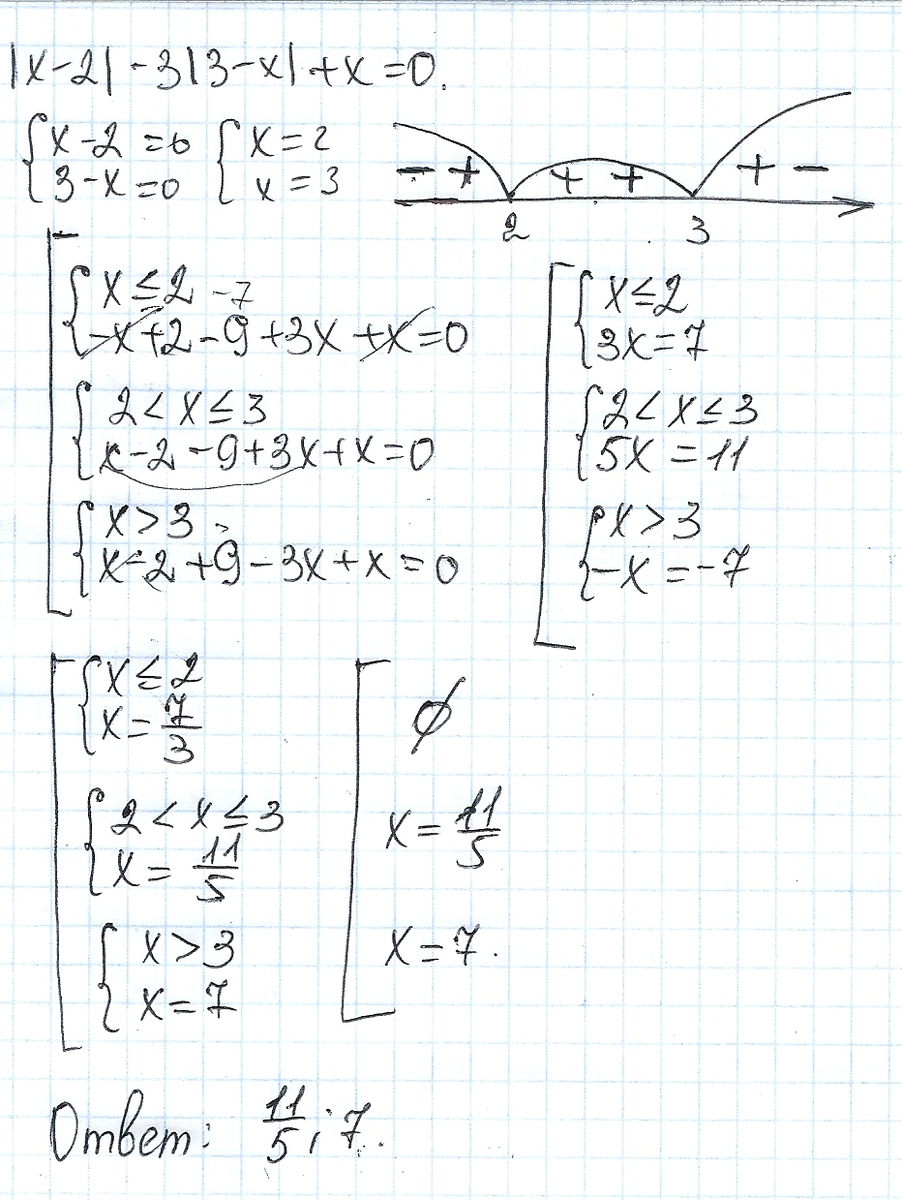 |x-2| -3|3-x| +x=0.
{x-2=0 {x=2
{3-x=0 {x=3
- + + + + -
2 3
{x≤2 -7
{-x+2-9+3x+x=0
{2<x≤3
{x-2-9+3x+x=0
{x>3
{x-2+9-3x+x=0
{x≤2
{3x=7
{2<x≤3
{5x=11
{x>3
{-x=-7
{x≤2
{x=7/3
{2<x≤3
{x=11/5
{x>3
{x=7
∅
x=11/5
x=7.
Ответ: 11/5; 7.